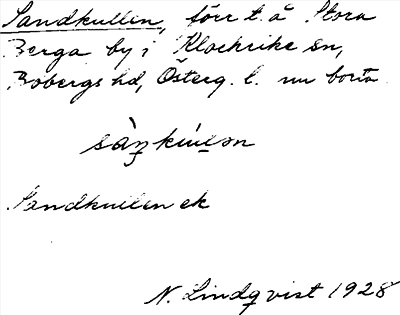 Sandkullen, förr t. å Stora
Berga by i Klockrike sn,
Bobergs hd, Österg. l. nu borta
Sandkullen ek
N. Lindqvist 1928